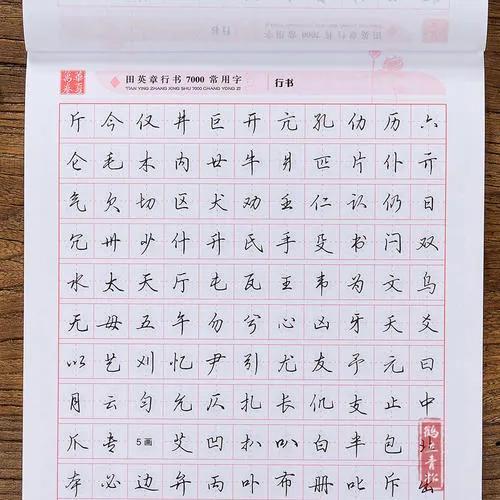 田英章行书 7000 常用字 行书
TIAN YING ZHANG XING SHU 7000 CHANG YONG ZI
斤 今 仅 井 巨 开 亢 孔 仂 历 六
仑 毛 木 内 廿 牛 爿 匹 片 仆 亓
气 欠 切 区 犬 劝 壬 仁 认 仍 日
冗 卅 少 什 升 氏 手 殳 书 闩 双
水 太 天 厅 屯 瓦 王 韦 为 文 乌
无 毋 五 午 勿 兮 心 凶 牙 夭 爻
以 艺 刈 忆 尹 引 尤 友 予 元 曰
月 云 匀 允 仄 扎 长 仉 支 止 中
爪 专 5画 艾 凹 扒 叭 白 半 包 北
本 必 边 弁 丙 卟 布 册 叱 斥 出